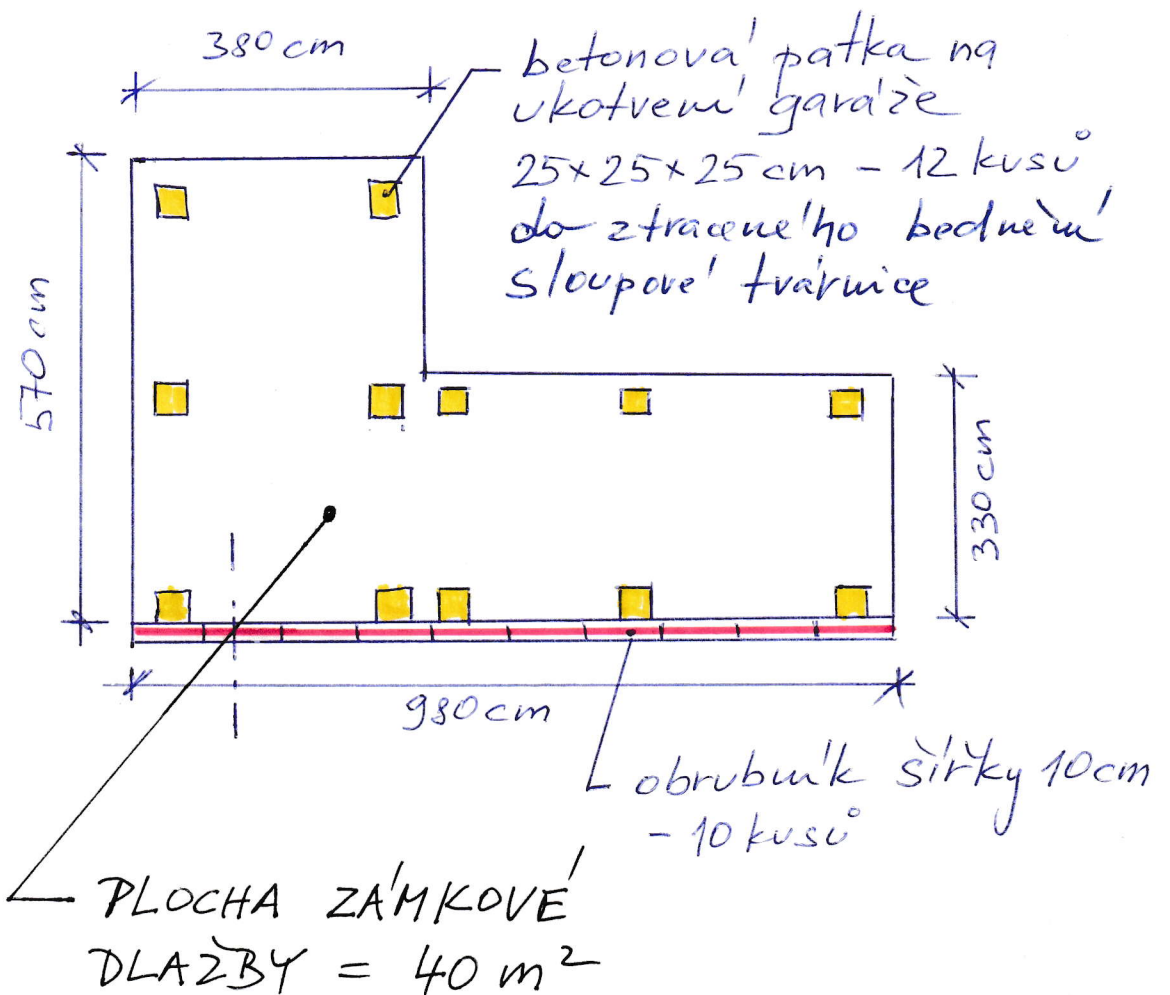 380 cm
betonová patka na
ukotvení garáže
25×25×25 cm - 12 kusů
do ztraceného bednění
sloupové tvárnice
570 cm
330 cm
980 cm
obrubník šířky 10 cm
- 10 kusů
PLOCHA ZÁMKOVÉ
DLAŽBY = 40 m²